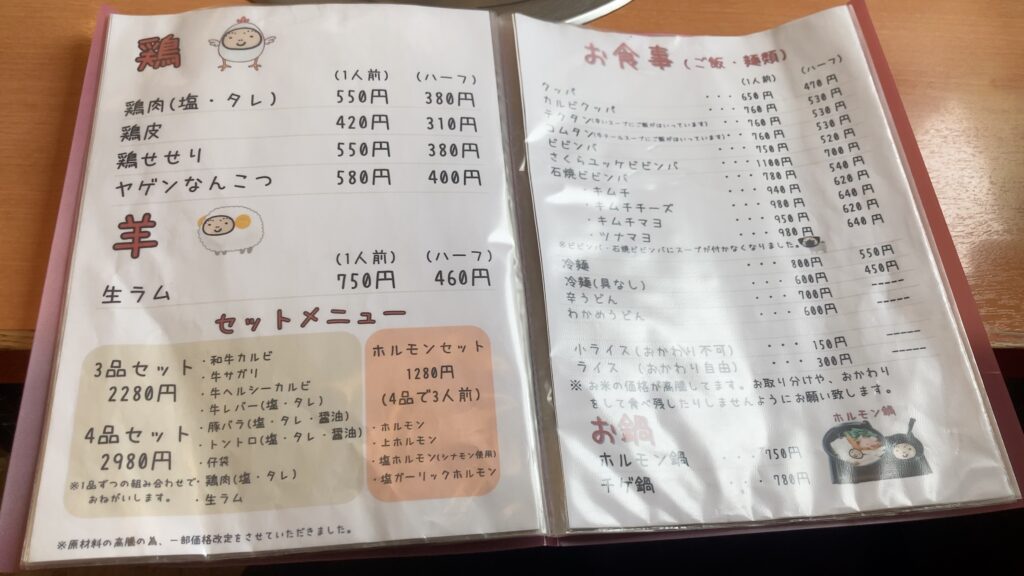 鶏
(1人前) (ハーフ)
鶏肉(塩・タレ) 550円 380円
鶏皮 420円 310円
鶏せせり 550円 380円
ヤゲンなんこつ 580円 400円
羊
(1人前) (ハーフ)
生ラム 750円 460円
セットメニュー
3品セット
2280円
4品セット
2980円
※1品ずつの組み合わせで
おねがいします。
・和牛カルビ
・牛サガリ
・牛ヘルシーカルビ
・牛レバー(塩・タレ)
・豚バラ(塩・タレ・醤油)
・トントロ(塩・タレ・醤油)
・仔袋
・鶏肉(塩・タレ)
・生ラム
ホルモンセット
1280円
(4品で3人前)
・ホルモン
・上ホルモン
・塩ホルモン(シナモン使用)
・塩ガーリックホルモン
※原材料の高騰の為、一部価格改定をさせていただきました。
お食事 (ご飯・麺類)
(1人前) (ハーフ)
クッパ ・・・650円 470円
カルビクッパ ・・・760円 530円
テクタン(辛いスープにご飯がはいっています)・・760円 530円
コムタン(牛テールスープにご飯がはいっています)・・760円 530円
ビビンバ ・・・750円 520円
さくらユッケビビンバ ・・・1100円 700円
石焼ビビンバ ・・・780円 540円
・キムチ ・・・940円 620円
・キムチチーズ ・・・980円 640円
・キムチマヨ ・・・950円 620円
・ツナマヨ ・・・980円 640円
※ビビンバ・石焼ビビンバにスープが付かなくなりました。
冷麺 ・・・800円 550円
冷麺(具なし) ・・・600円 450円
辛うどん ・・・700円 -----
わかめうどん ・・・600円 -----
小ライス(おかわり不可) ・・・150円 -----
ライス (おかわり自由) ・・・300円 -----
※ お米の価格が高騰してます。お取り分けや、おかわり
をして食べ残したりしませんようにお願い致します。
お鍋
ホルモン鍋
ホルモン鍋 ・・・750円
チゲ鍋 ・・・780円